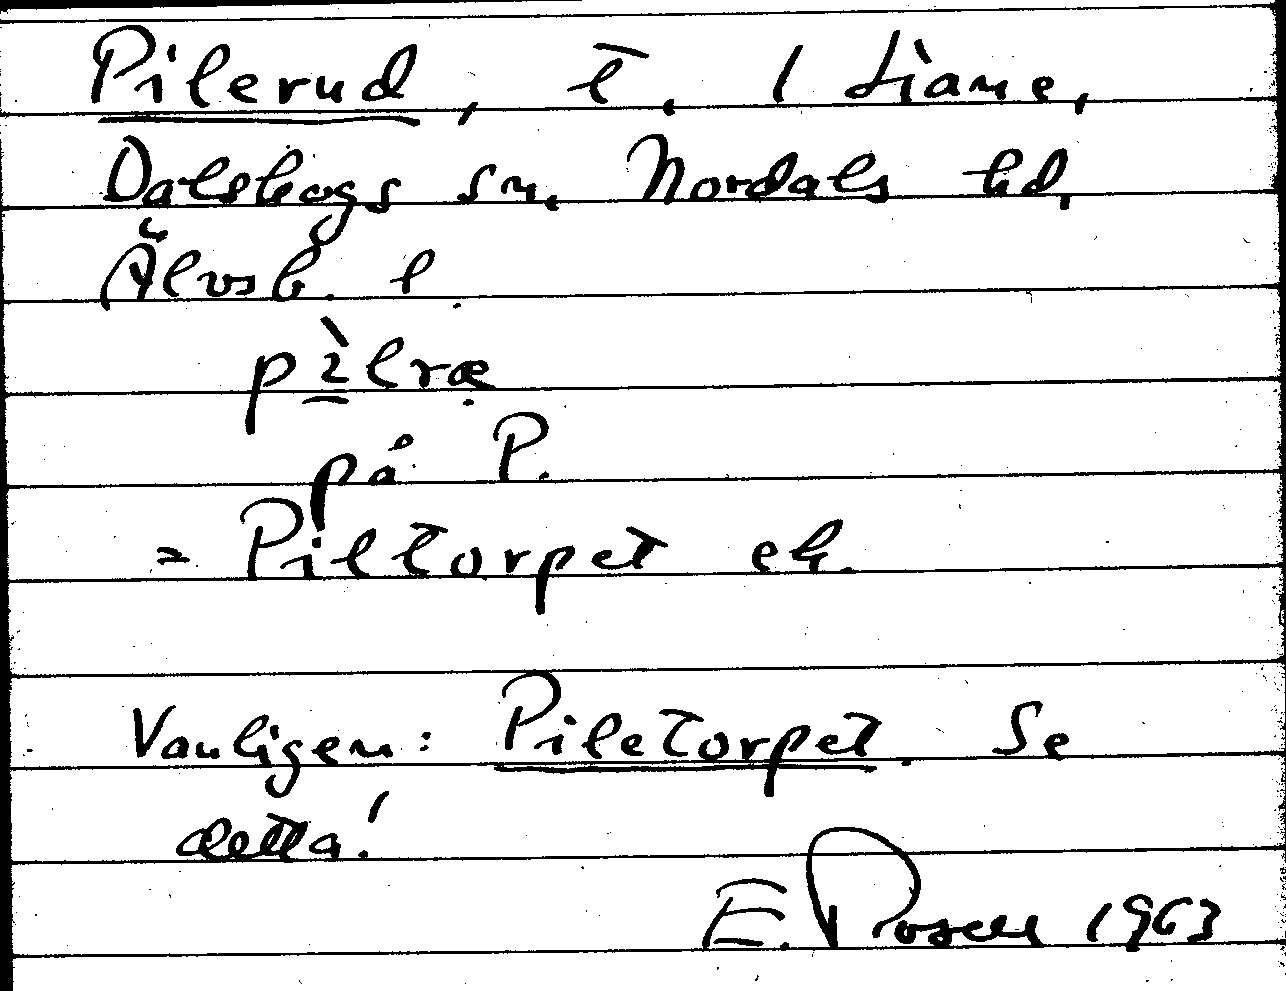 Pilerud, t. l Liane,
Dalskogs sn, Nordals hd,
Älvsb. l.
pìlræ
på P.
= Piltorpet ek.
Vanligen: Piletorpet. Se
detta!
E. 1963